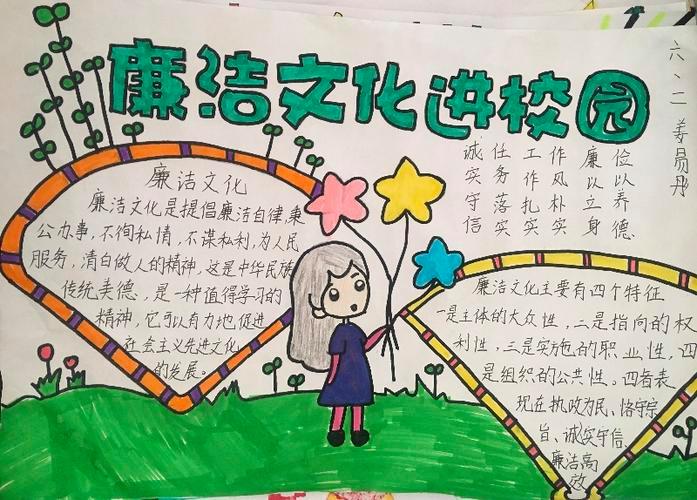 廉洁文化进校园
六、二 姜昜彤
诚实守信
任务落实
工作扎实
作风朴实
廉以立身
俭以养德
廉洁文化
廉洁文化是提倡廉洁自律,秉
公办事,不徇私情,不谋私利,为人民
服务,清白做人的精神,这是中华民族
传统美德,是一种值得学习的
精神,它可以有力地促进
社会主义先进文化
的发展。
廉洁文化主要有四个特征
一是主体的大众性,二是指向的权
利性,三是实施的职业性,四
是组织的公共性。四者表
现在执政为民、恪守宗
旨、诚实守信、
廉洁高
效